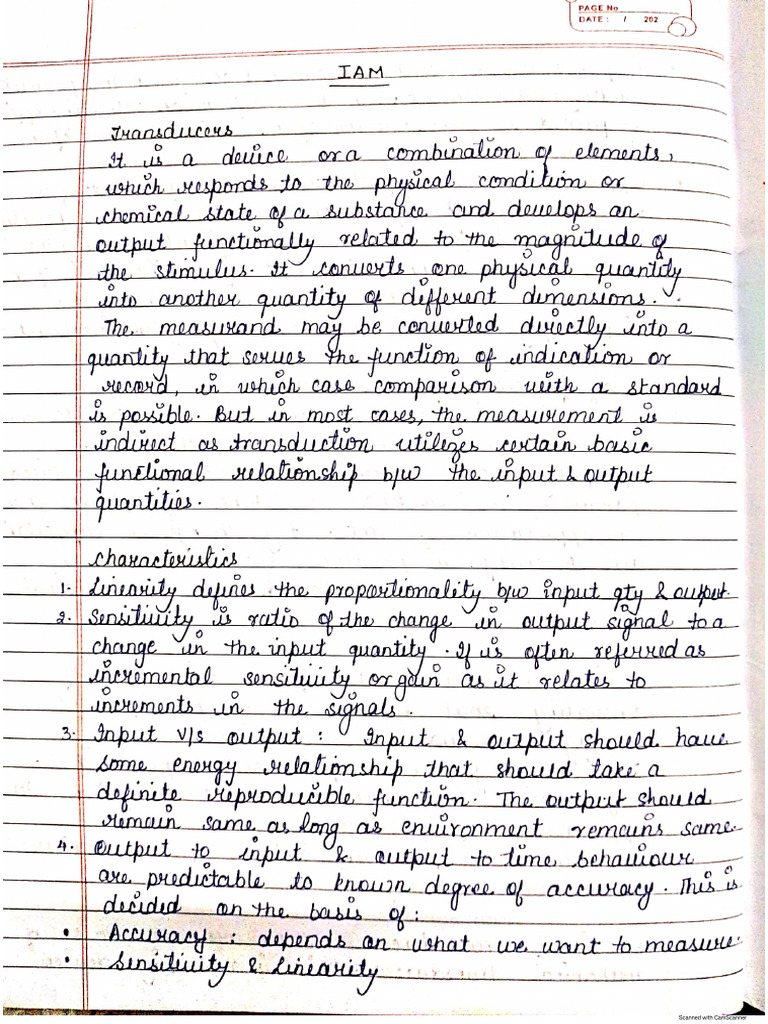 PAGE No
DATE : / 202
IAM
Transducers
It is a device or a combination of elements,
which responds to the physical condition or
chemical state of a substance and develops an
output functionally related to the magnitude of
the stimulus. It converts one physical quantity
into another quantity of different dimensions.
The measurand may be converted directly into a
quantity that serves the function of indication or
record, in which case comparison with a standard
is possible. But in most cases, the measurement is
indirect as transduction utilizes certain basic
functional relationship b/w the input & output
quantities.
Characteristics
1. Linearity defines the proportionality b/w input qty & output.
2. Sensitivity is ratio of the change in output signal to a
change in the input quantity. It is often referred as
incremental sensitivity or gain as it relates to
increments in the signals.
3. Input v/s output : Input & output should have
some energy relationship that should take a
definite reproducible function. The output should
remain same as long as environment remains same.
4. Output to input & output to time behaviour
are predictable to known degree of accuracy. This is
decided on the basis of :
• Accuracy : depends on what we want to measure.
• Sensitivity & Linearity
Scanned with CamScanner